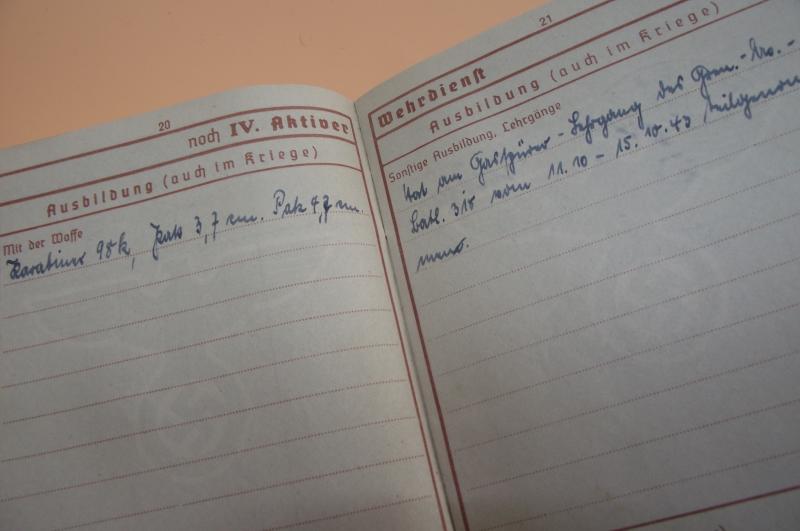 20
noch IV. Aktiver
Ausbildung (auch im Kriege)
Mit der Waffe
Karabiner 98k, Pak 3,7 cm. Pak 4,7 cm.
21
Wehrdienst
Ausbildung (auch im Kriege)
Sonstige Ausbildung, Lehrgänge
Hat am Gasspürer-Lehrgang des Gren.-
Batl. 315 vom 11.10 – 15.10.43 teilgenom
men.